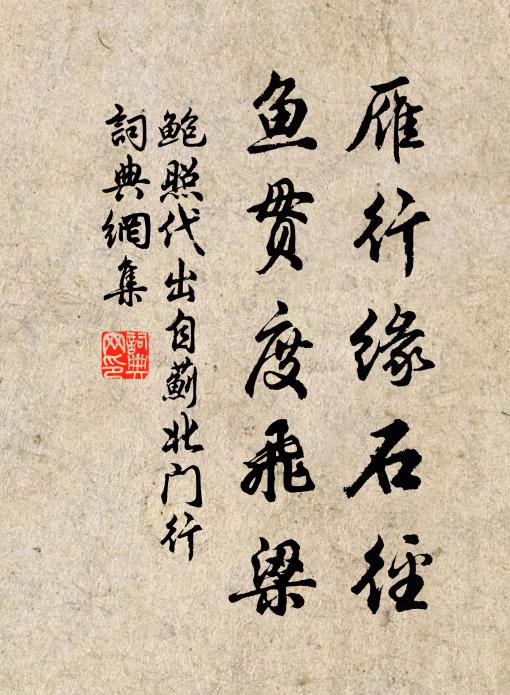 雁行缘石徑
鱼贯度飛梁
鲍照代出自薊北门行
詞典網集
詞典
网印